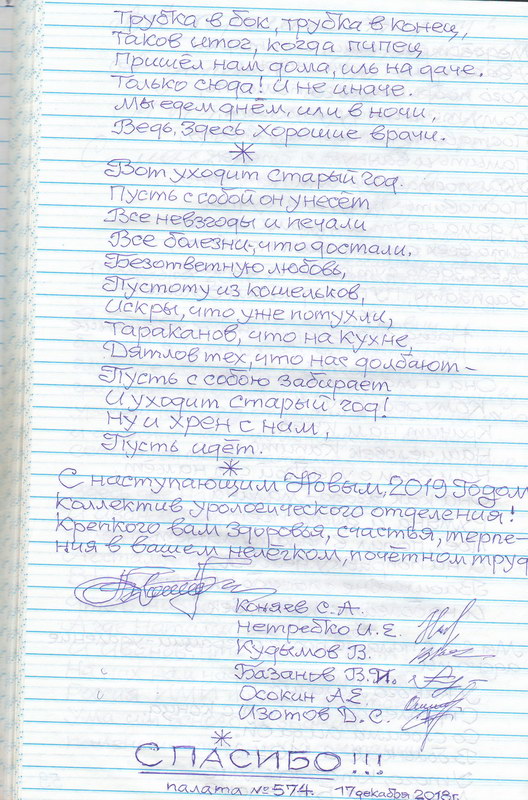 Трубка в бок, трубка в конец,
Таков итог, когда пипец
Пришёл нам дома, иль на даче.
Только сюда! И не иначе.
Мы едем днём, или в ночи,
Ведь, здесь хорошие врачи.
*
Вот уходит старый год.
Пусть с собой он унесёт
Все невзгоды и печали
Все болезни, что достали,
Безответную любовь,
Пустоту из кошельков,
Искры, что уже потухли,
Тараканов, что на кухне,
Дятлов тех, что нас долбают –
Пусть с собою забирает
И уходит старый год!
Ну и хрен с ним,
Пусть идёт.
*
С наступающим Новым, 2019 Годом
Коллектив урологического отделения!
Крепкого вам здоровья, счастья, терпе-
ния в вашем нелёгком, почётном труд
Коняев С.А.
Нетребко И.Е.
Кудымов В.
" Базанов В.И.
" Осокин А.Е.
Изотов Д.С.
*
СПАСИБО!!!
палата №574. 17 декабря 2018г.